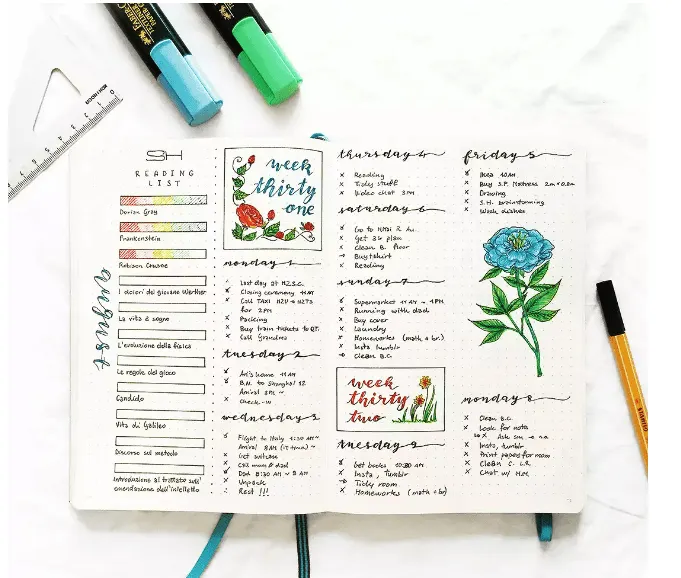 FABER-CASTELL
SH
READING
LIST
Dorian Gray
Frankenstein
Robison Crusoe
I dolori del giovane Werther
La vita è sogno
L'evoluzione della fisica
Le regole del gioco
Candido
Vita di Galileo
Discorso sul metodo
Introduzione al trattato sull'
emendazione dell'intelletto
august
week
thirty
one
monday 1
Last day at N.Z.S.C.
Closing ceremony 11 AM
Call TAXI
for 2 PM
Packing
Buy train tickets to
Call Grandma
tuesday 2
Ari's home 11 AM
to Shanghai
Arrival
Check-in
wednesday 3
Flight to Italy 1:30 AM~
Arrival 8 AM
Get suitcase
mum & dad
Unpack
Rest !!!
thursday 4
Reading
Tidy stuff
Video chat 3 PM
saturday 6
Go to
Get 3G plan
Clean B. floor
Buy tshirt
Reading
sunday 7
Supermarket 11 AM ~ 1 PM
Running with dad
Buy cover
Laundry
Homeworks (math + br.)
Insta, tumblr
Clean B.C.
week
thirty
two
tuesday 9
Get books 10:30 AM
Insta, Tumblr
Tidy room
Homeworks (math + br)
friday 5
Ikea 10 AM
Buy S.P. Mattress
Drawing
S.H. brainstorming
Wash dishes
monday 8
Clean B.C.
Look for nota
Ask
Insta, tumblr
Print paper for mom
Clean C. L.R.
Chat w/